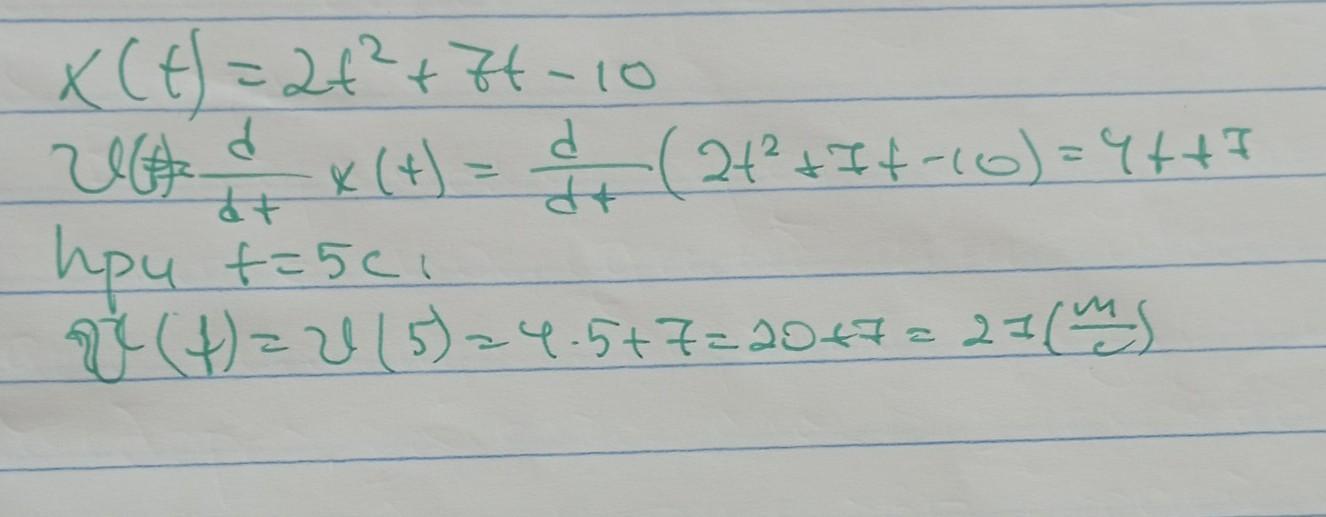 x(t) = 2t² + 7t - 10
v(t) = d/dt x(t) = d/dt (2t² + 7t - 10) = 4t + 7
при t = 5c,
v(t) = v(5) = 4·5 + 7 = 20 + 7 = 27 (м/c)